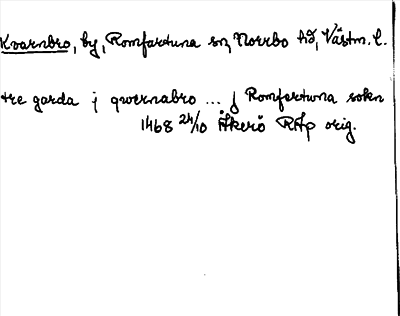 Kvarnbro, by, Romfartuna sn, Norrbo hd, Västm. l.
tre garda j qwernabro ... j Romfertuna sokn
1468 24/10 Åkerö RAp orig.